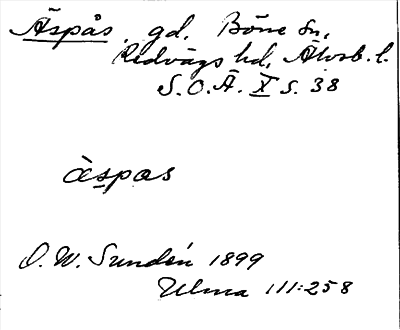 Äspås, gd, Böne sn,
Redvägs hd, Älvsb. l.
S.O.Ä. X s. 38
àspas
O. W. Sundén 1899
Ulma 111:258